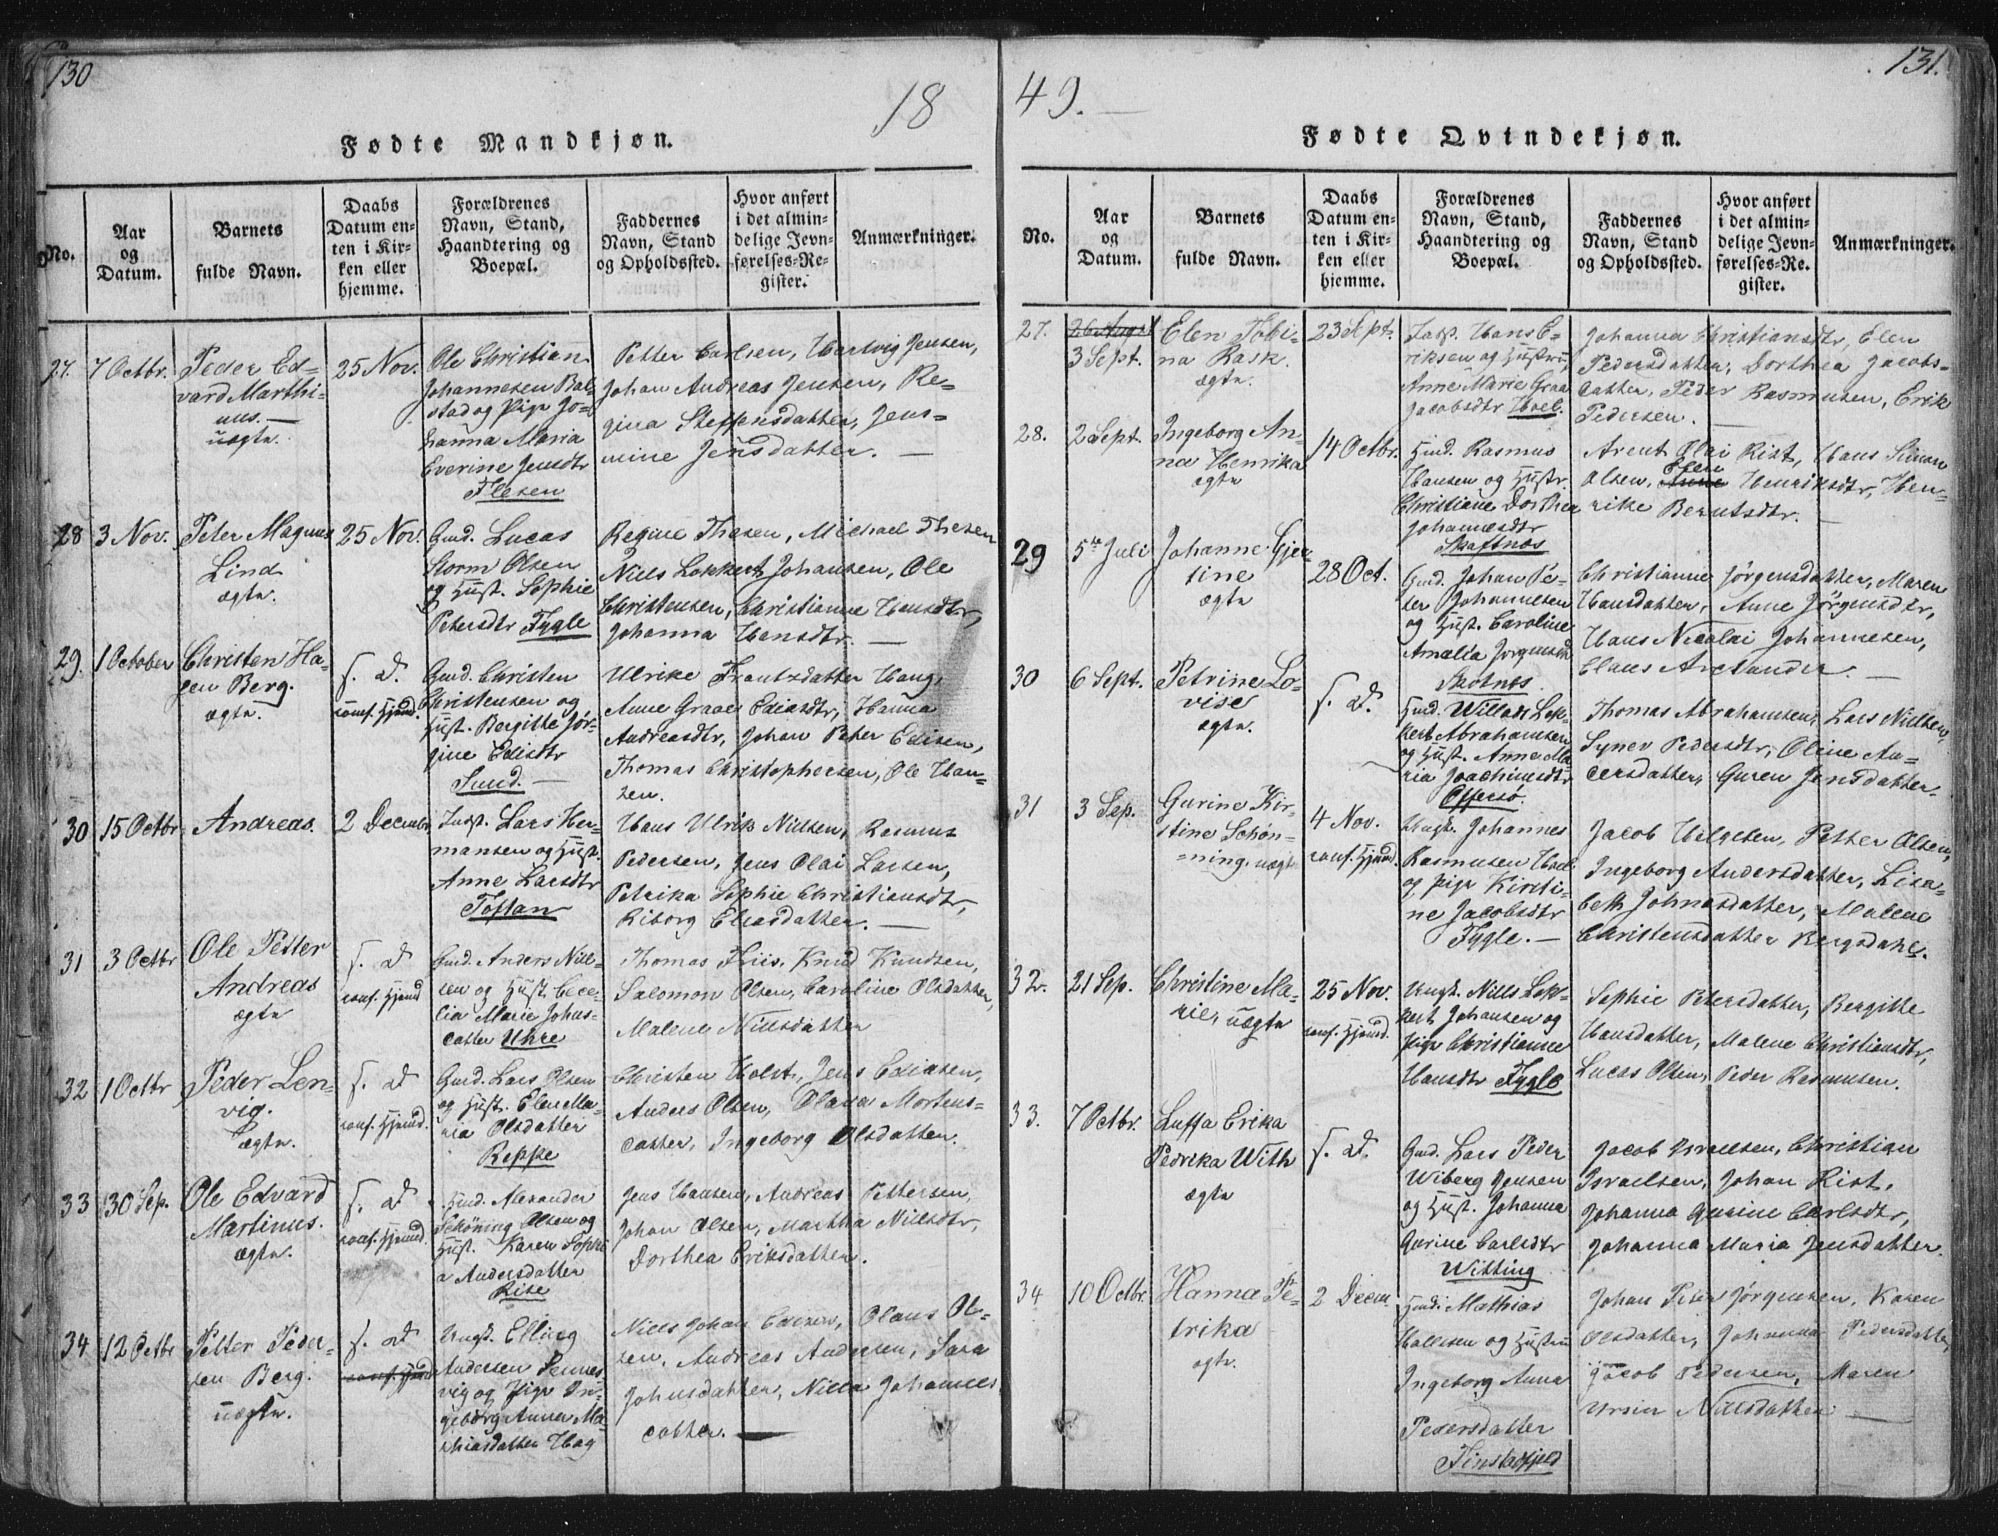 130
18
Fødte Mandkjøn.
No.
Aar
og
Datum.
Barnets
fulde Navn.
Daabs
Datum en-
ten i Kir-
ken eller
hjemme.
Forældrenes
Navn, Stand,
Haandtering og
Boepæl.
Faddernes
Navn, Stand
og Opholdssted.
Hvor anført
i det almin-
delige Jevn-
førelses-Re-
gister.
Anmærkninger.
27.
7 Octbr.
Peder Ed-
vard Marthi-
nus. —
uægte.
25 Nov.
Ole Christian
Johannesen Bal-
stad og Pige Jo-
hanna Maria
Everine Jensdtr
Flesen
Petter Carlsen, Hartvig Jensen,
Johan Andreas Jensen, Re-
gina Steffensdatter, Jens-
mine Jensdatter. —
28
3 Nov.
Peter Magnus
Lind
ægte.
25 Nov.
Gmd. Lucas
Storm Olsen
og Hust. Sophie
Petersdtr Fygle
Regine Thesen, Michael Thesen
Niels Lokkert Johansen, Ole
Christensen, Christianne Hansdtr,
Johanna Hansdtr. —
29.
1 October
Christen Ha-
gen Berg.
ægte.
s. D.
conf. Hjemd.
Gmd. Christen
Christensen og
Hust. Bergitte Jør-
gine Edisdtr
Sund. —
Ulrike Frantzdatter Haug,
Anne Graae Ediasdtr, Hanna
Andreasdtr, Johan Peter Edisen,
Thomas Christophersen, Ole Han-
sen.
30
15 Octbr
Andreas.
2 Decembr
Indst. Lars Her-
mansen og Hust.
Anne Larsdtr
Toftan
Hans Ulrik Nielsen, Rasmus
Pedersen, Jens Olai Larsen,
Petrika Sophie Christiansdtr,
Riborg Eliasdatter. —
31
3 Octbr
Ole Petter
Andreas
ægte
s. D
conf. Hjemd
Gmd. Anders Niel-
sen og Hust. Cece-
lia Marie Johns-
datter Uhre
Thomas Friis, Knud Knudsen,
Salomon Olsen, Caroline Olsdatter,
Malene Nillsdatter
32
1 Octbr
Peder Len-
vig.
ægte.
s. D
conf. Hjemd.
Gmd. Lars Olsen
og Hust. Elen Ma-
ria Olsdatter
Reppe
Christen Holst, Jens Ediasen,
Anders Olsen, Olava Mortens-
datter, Ingeborg Olsdatter.
33
30 Sep.
Ole Edvard
Martinus.
ægte.
s. D
conf. Hjemd.
Hmd. Alexander
Schöning Olsen og
Hust. Karen Sophi
a Andersdatter
Rise
Jens Hansen, Andreas Pettersen,
Johan Olsen, Martha Nillsdtr,
Dorthea Eriksdatter.
34
12 Octbr
Petter Peder-
sen Berg.
uægte.
s. D
conf. Hjemd
Ungk. Elling
Andersen Sennes-
vig og Pige In-
geborg Anna Ma-
thiasdatter Hag
Niels Johan Edisen, Olaus Ol-
sen, Andreas Andersen, Sara
Johnsdatter, Nilla Johannes
datter. —
131.
49. —
Fødte Qvindekjøn.
No.
Aar
og
Datum.
Barnets
fulde Navn.
Daabs
Datum en-
ten i Kir-
ken eller
hjemme.
Forældrenes
Navn, Stand,
Haandtering og
Boepæl.
Faddernes
Navn, Stand
og Opholdssted.
Hvor anført
i det almin-
delige Jevn-
førelses-Re-
gister.
Anmærkninger.
27.
26 Augst
3 Sept.
Elen Tobi-
na Rask.
ægte
23 Sept.
Indst. Hans E-
riksen og Hustru
Anne Marie Graa
Jacobsdtr Hoel.
Johanna Christiansdtr, Elen
Pedersdatter, Dorthea Jacobs-
datter, Peder Rasmusen, Erik
Pedersen. —
28.
2 Sept.
Ingeborg An-
na Henrika
ægte
14 Octbr.
Hmd. Rasmus
Hansen og Hustr.
Christiane Dorthea
Johannesdtr
Skaftnes
Arent Olai Rist, Hans Simon
Olsen, Elen Henriksdtr, Hen-
rike Berntsdtr. —
29
5te Juli
Johanne Gjer-
tine
ægte
28 Oct.
Gmd. Johan Pe-
ter Johannesen
og Hust. Caroline
Amalia Jørgensdtr
Skotnes
Christianne Jørgensdatter, Maren
Hansdatter, Anne Jørgensdtr,
Hans Nicolai Johannesen,
Claus Arctander. —
30
6 Sept.
Petrine Lo-
vise
ægte
s. D.
Hmd. Willads Lok-
kert Abrahamsen
og Hust. Anne Ma-
ria Joachimsdtr
Offersø.
Thomas Abrahamsen, Lars Nielsen,
Synev Pedersdtr, Oline An-
dersdatter, Guren Jensdatter.
31
3 Sep.
Gurine Kir-
stine Schøn-
ning. uægte
4 Nov.
conf. Hjemd.
Ungk. Johannes
Rasmusen Hoel
og Pige Kirsti-
ne Jacobsdtr
Fygle. —
Jacob Helgesen, Petter Olsen,
Ingeborg Andersdatter, Lisa-
beth Johnasdatter, Malene
Christensdatter Bergsdahl.
32.
21 Sep.
Christine Ma-
rie, uægte
25 Nov.
conf. Hjemd.
Ungk. Niels Lok-
kert Johansen og
Pige Christianne
Hansdtr Fygle
Sophie Petersdatter, Bergitte
Hansdatter, Malene Christiansdtr,
Lucas Olsen, Peder Rasmusen.
33.
7 Octbr.
Luffa Erika
Pedrika With
ægte
s. D.
Gmd. Lars Peder
Wiberg Jensen
og Hust. Johanna
Gurine Carlsdtr
Witting
Jacob Israelsen, Christian
Israelsen, Johan Rist,
Johanna Gurine Carlsdtr,
Johanna Maria Jensdatter.
34
10 Octbr.
Hanna Pe-
trika
ægte.
2 Decem.
Hmd. Mathias
Hallesen og Hustru
Ingeborg Anna
Pedersdatter
Finstadfjord
Johan Peter Jørgensen, Karen
Olsdatter, Johanna Pedersdatter
Jacob Pedersen, Maren
Ursin Nillsdatter —